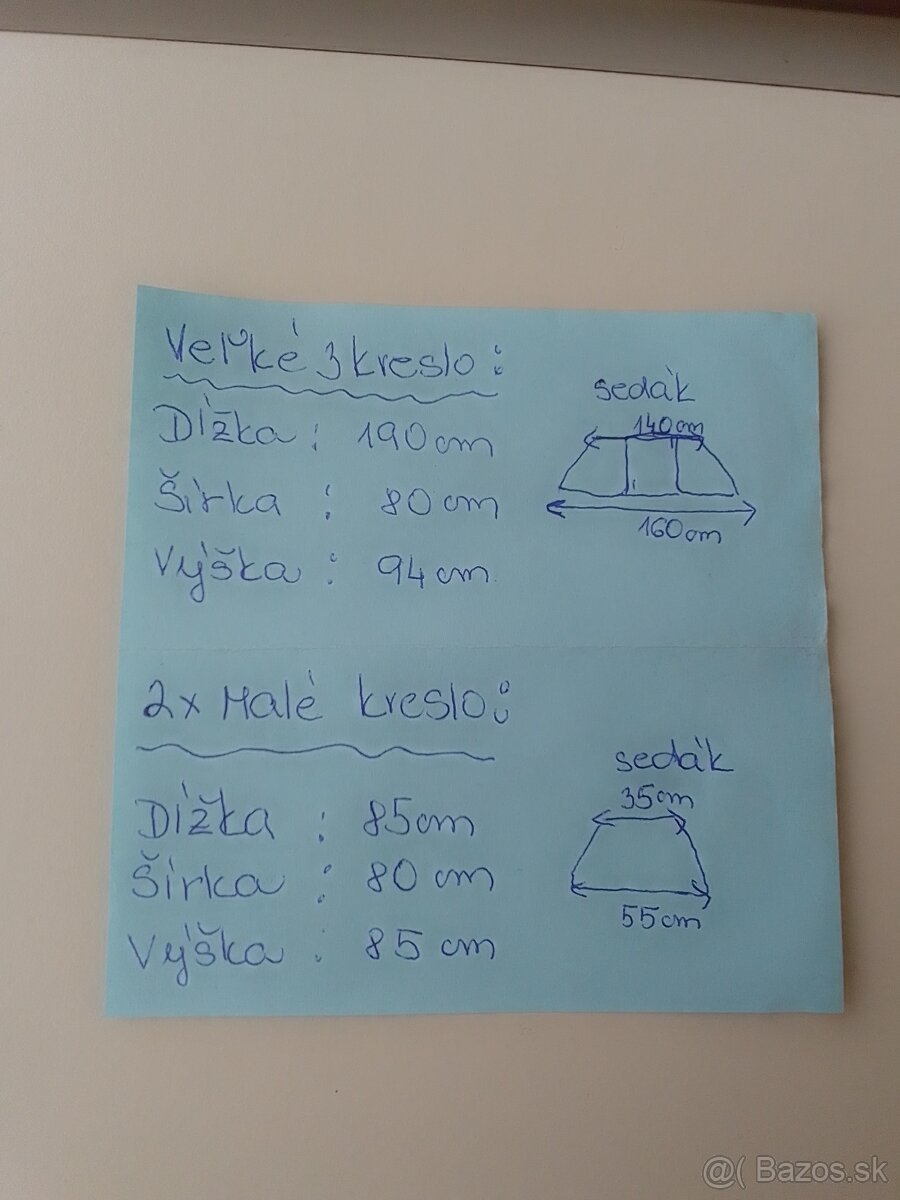 Veľké 3kreslo:
Dĺžka : 190cm
Šírka : 80cm
Výška : 94cm
sedák
140cm
160cm
2x Malé kreslo:
Dĺžka : 85cm
Šírka : 80cm
Výška : 85cm
sedák
35cm
55cm
@( Bazos.sk